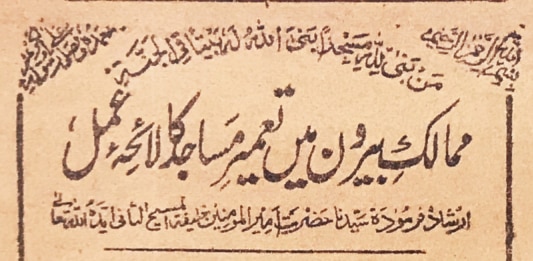 بسم اللہ الرحمن الرحیم
من بنی للہ مسجدا بنی اللہ لہ بیتا فی الجنۃ
ممالکِ بیرون میں تعمیر مساجد کا لائحۂ عمل
ارشاد فرمودہ سیدنا حضرت امیر المومنین خلیفۃ المسیح الثانی ایدہ اللہ تعالیٰ